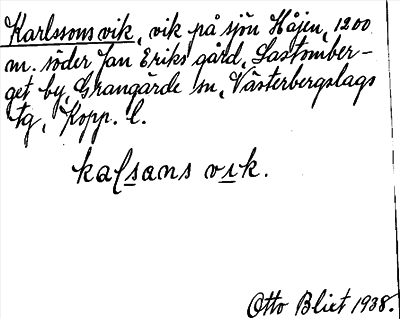 Karlssons vik, vik på sjön Håjen, 1200
m. söder Jan Eriks gård, Laxtomber-
get by, Grangärde sn, Västerbergslags
tg, Kopp. l.
kaʃsans vɪk.
Otto Blixt 1938.